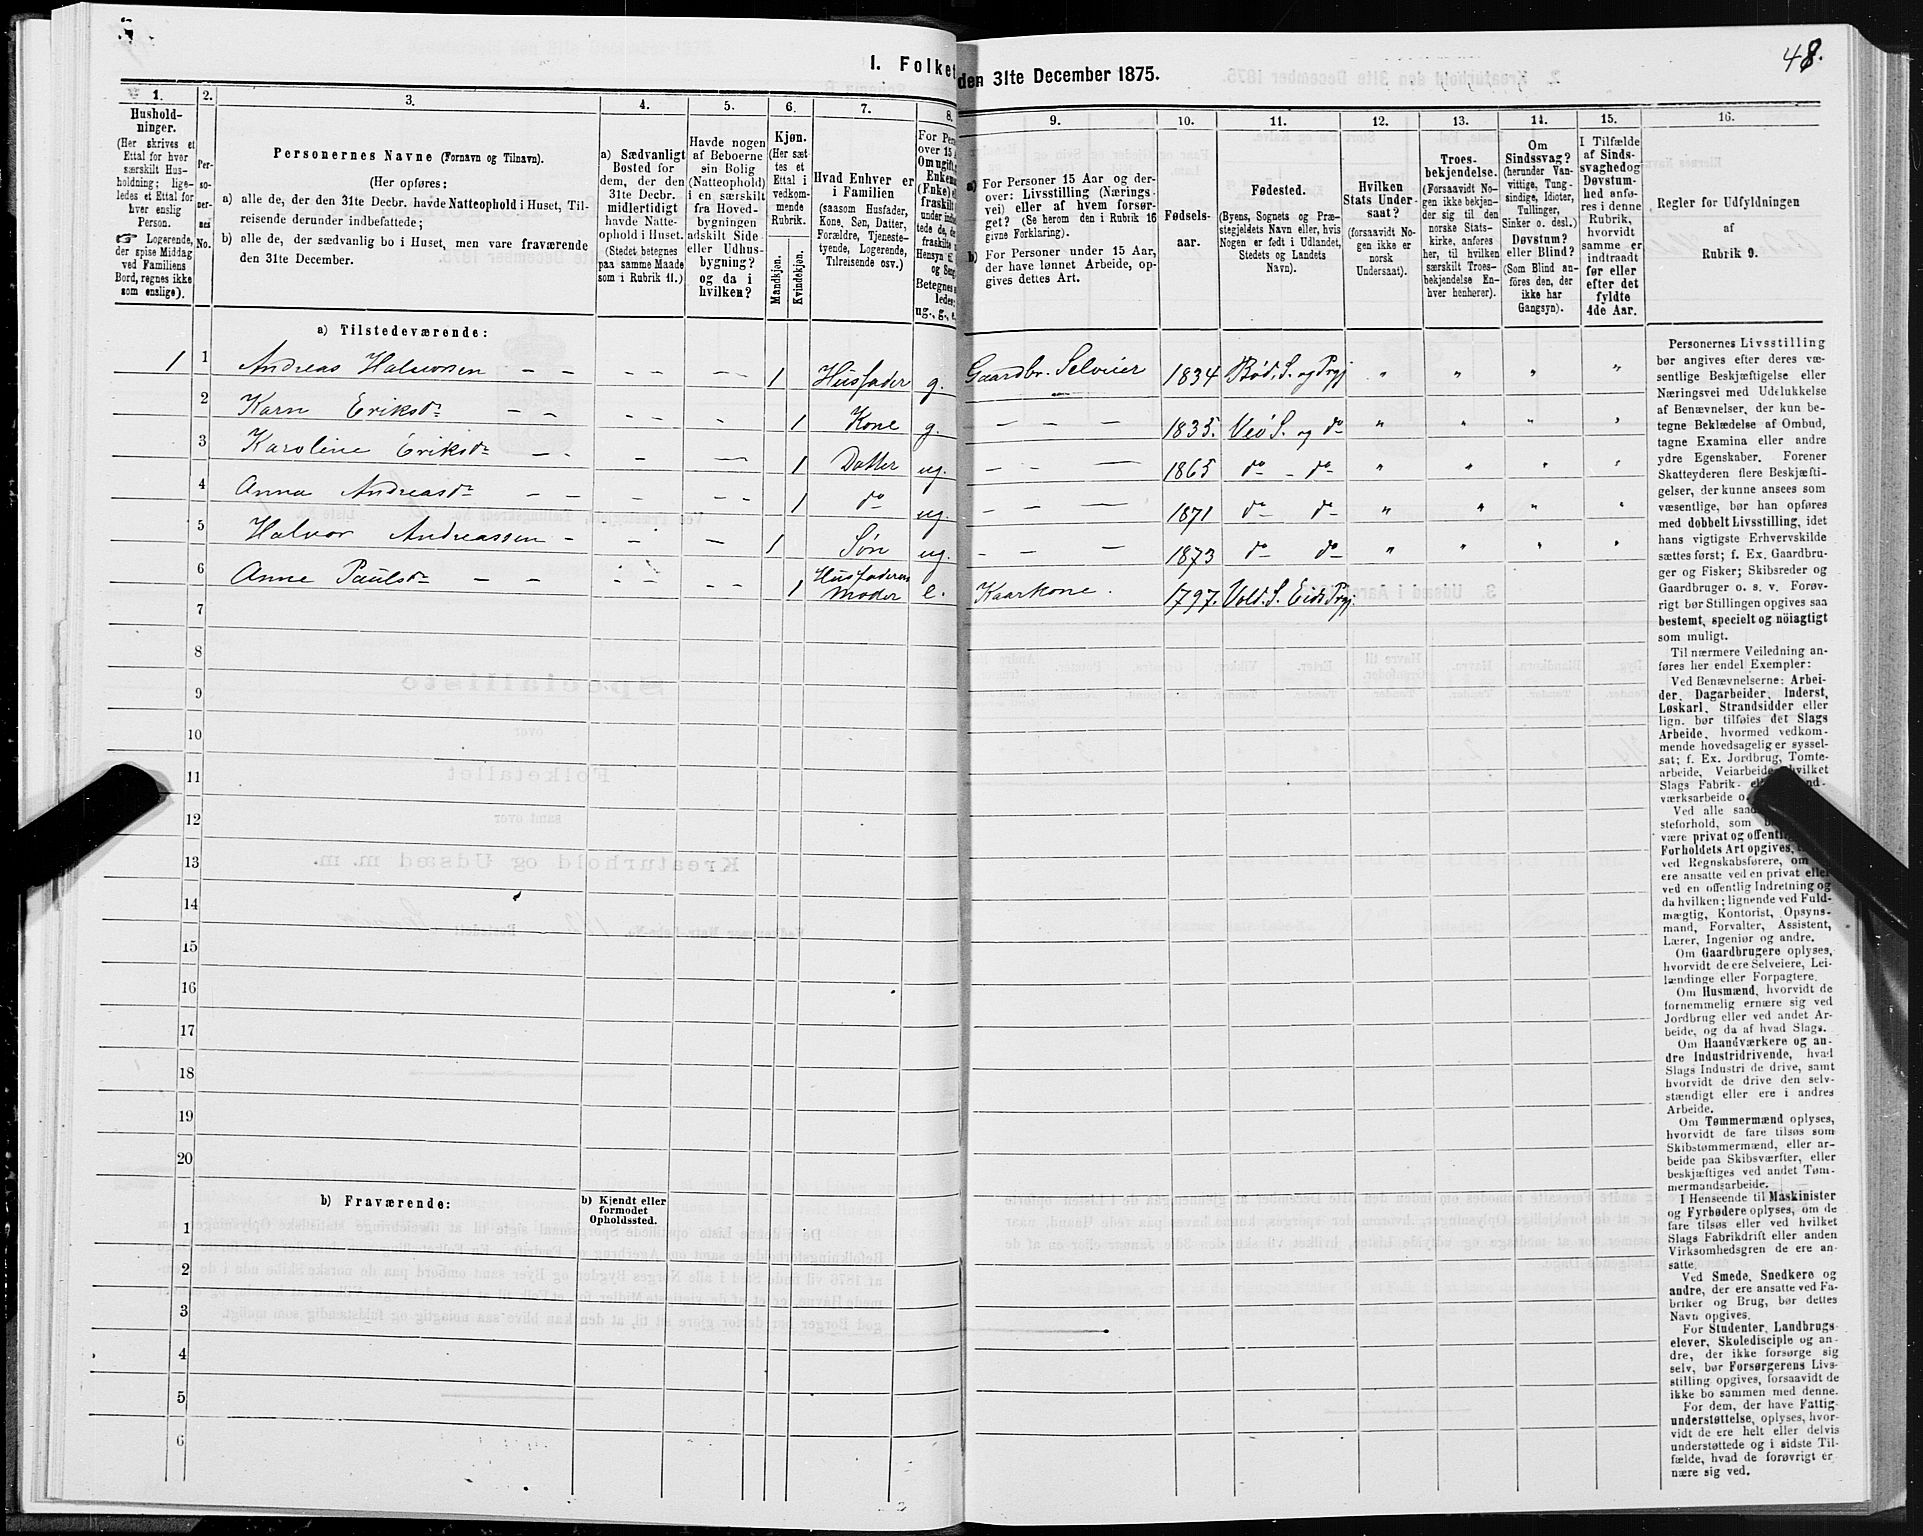 48.
1. Folket den 31te December 1875.
1. 2. 3. 4. 5. 6. 7. 8. 9. 10. 11. 12. 13. 14. 15. 16.
Husholdninger. (Her skrives et Ettal for hver særskilt Husholdning; ligeledes et Ettal for hver enslig Person. ☞ Logerende, der spise Middag ved Familiens Bord, regnes ikke som enslige).
Personernes No.
Personernes Navne (Fornavn og Tilnavn).
(Her opføres:
a) alle de, der den 31te Decbr. havde Natteophold i Huset, Tilreisende derunder indbefattede;
b) alle de, der sædvanlig bo i Huset, men vare fraværende den 31te December.
a) Sædvanligt Bosted for dem, der den 31te Decbr. midlertidigt havde Natteophold i Huset. (Stedet betegnes paa samme Maade som i Rubrik 11.)
Havde nogen af Beboerne sin Bolig (Natteophold) i en særskilt fra Hovedbygningen adskilt Side- eller Udhusbygning? og da i hvilken?
Kjøn. (Her sættes et Ettal i vedkommende Rubrik.
Mandkjøn. Kvindekjøn.
Hvad Enhver er i Familien (saasom Husfader, Kone, Søn, Datter, Forældre, Tjenestetyende, Logerende, Tilreisende osv.)
For Pers over 15 A Omugift, Enkema (Fnke) e fraskilt
Betegnes ledes: ug., g., e.
a) For Personer 15 Aar og derover: Livsstilling (Næringsvei) eller af hvem forsørget? (Se herom den i Rubrik 16 givne Forklaring).
b) For Personer under 15 Aar, der have lønnet Arbeide, opgives dettes Art.
Fødselsaar.
Fødested. (Byens, Sognets og Præstegjeldets Navn eller, hvis Nogen er født i Udlandet, Stedets og Landets Navn).
Hvilken Stats Undersaat? (forsaavidt Nogen ikke er norsk Undersaat).
Troesbekjendelse. (Forsaavidt Nogen ikke bekjender sig til den norske Statskirke, anføres her, til hvilken særskilt Troesbekjendelse Enhver henhører).
Om Sindssvag? (herunder Vanvittige, Tungsindige, Idioter, Tullinger, Sinker o. desl.) Døvstum? eller Blind? (Som Blind anføres den, der ikke har Gangsyn).
I Tilfælde af Sindssvaghed og Døvstumhed anføres i denne Rubrik, hvorvidt samme er indtraadt før eller efter det fyldte 4de Aar.
Regler for Udfyldningen af Rubrik 9.
a) Tilstedeværende:
1 1 Andreas Halvorsen – – – – – – 1 Husfader g. Gaardbr. Selveier 1834 Bød. S. og Prgj. " " " "
2 Karn Eriksdr – – – – – 1 Kone g. – – – 1835. Veø S. og do " " " "
3 Karoline Eriksdr – – – – 1 Datter ug. – – – 1865 do – do " " " "
4 Anna Andreasdr – – – – – 1 do ug. – – – 1871 do do " " " "
5 Halvor Andreassen – – – – 1 Søn ug. – – – 1873 do do " " " "
6 Anne Paulsdr – – – – – – – 1 Husfaderens Moder e. Kaarkone. 1797. Vold. S. Eids Prgj.
7
8
9
10
11
12
13
14
15
16
17
18
19
20
b) Fraværende: b) Kjendt eller formodet Opholdssted.
1
2
3
4
5
6
Personernes Livsstilling
bør angives efter deres væsentlige
Beskjæftigelse eller
Næringsvei med Udelukkelse
af Benævnelser, der kun betegne
Beklædelse af Ombud,
tagne Examina eller andre
ydre Egenskaber. Forener
Skatteyderen flere Beskjæftigelser,
der kunne ansees som
væsentlige, bør han opføres
med dobbelt Livsstilling, idet
hans vigtigste Erhvervskilde
sættes først; f. Ex. Gaardbruger
og Fisker; Skibsreder og
Gaardbruger o. s. v. Forøvrigt
bør Stillingen opgives saa
bestemt, specielt og nöiagtigt
som muligt.
Til nærmere Veiledning anføres
her endel Exempler:
Ved Benævnelserne: Arbeider,
Dagarbeider, Inderst,
Løskarl, Strandsidder eller
lign. bør tilføies det Slags
Arbeide, hvormed vedkommende
hovedsagelig er sysselsat;
f. Ex. Jordbrug, Tomtearbeide,
Veiarbeide, hvilket
Slags Fabrik-
værksarbeide o.
Ved alle
steforhold, som
være privat og offentlig
Forholdets Art opgives,
ved Regnskabsførere, om
ere ansatte ved en privat eller
ved en offentlig Indretning og
da hvilken; lignende ved Fuldmægtig,
Kontorist, Opsynsmand,
Forvalter, Assistent,
Lærer, Ingeniør og andre.
Om Gaardbrugere oplyses,
hvorvidt de ere Selveiere, Leilændinge
eller Forpagtere.
Om Husmænd, hvorvidt de
fornemmelig ernære sig ved
Jordbrug eller ved andet Arbeide,
og da af hvad Slags.
Om Haandværkere og andre
Industridrivende, hvad
Slags Industri de drive, samt
hvorvidt de drive den selvstændigt
eller ere i andres
Arbeide.
Om Tømmermænd oplyses,
hvorvidt de fare tilsøs som
Skibstømmermænd, eller arbeide
paa Skibsværfter, eller
beskjæftiges ved andet Tømmermandsarbeide.
I Henseende til Maskinister
og Fyrbødere oplyses, om de
fare tilsøs eller ved hvilket
Slags Fabrikdrift eller anden
Virksomhedsgren de ere ansatte.
Ved Smede, Snedkere og
andre, der ere ansatte ved Fabriker
og Brug, bør dettes
Navn opgives.
For Studenter, Landbrugselever,
Skoledisciple og andre,
der ikke forsørge sig
selv, bør Forsørgerens Livsstilling
opgives, forsaavidt de
ikke bo sammen med denne.
For dem, der have Fattigunderstøttelse,
oplyses, hvorvidt
de ere helt eller delvis
understøttede og i sidste Tilfælde,
hvad de forøvrigt ernære
sig ved.